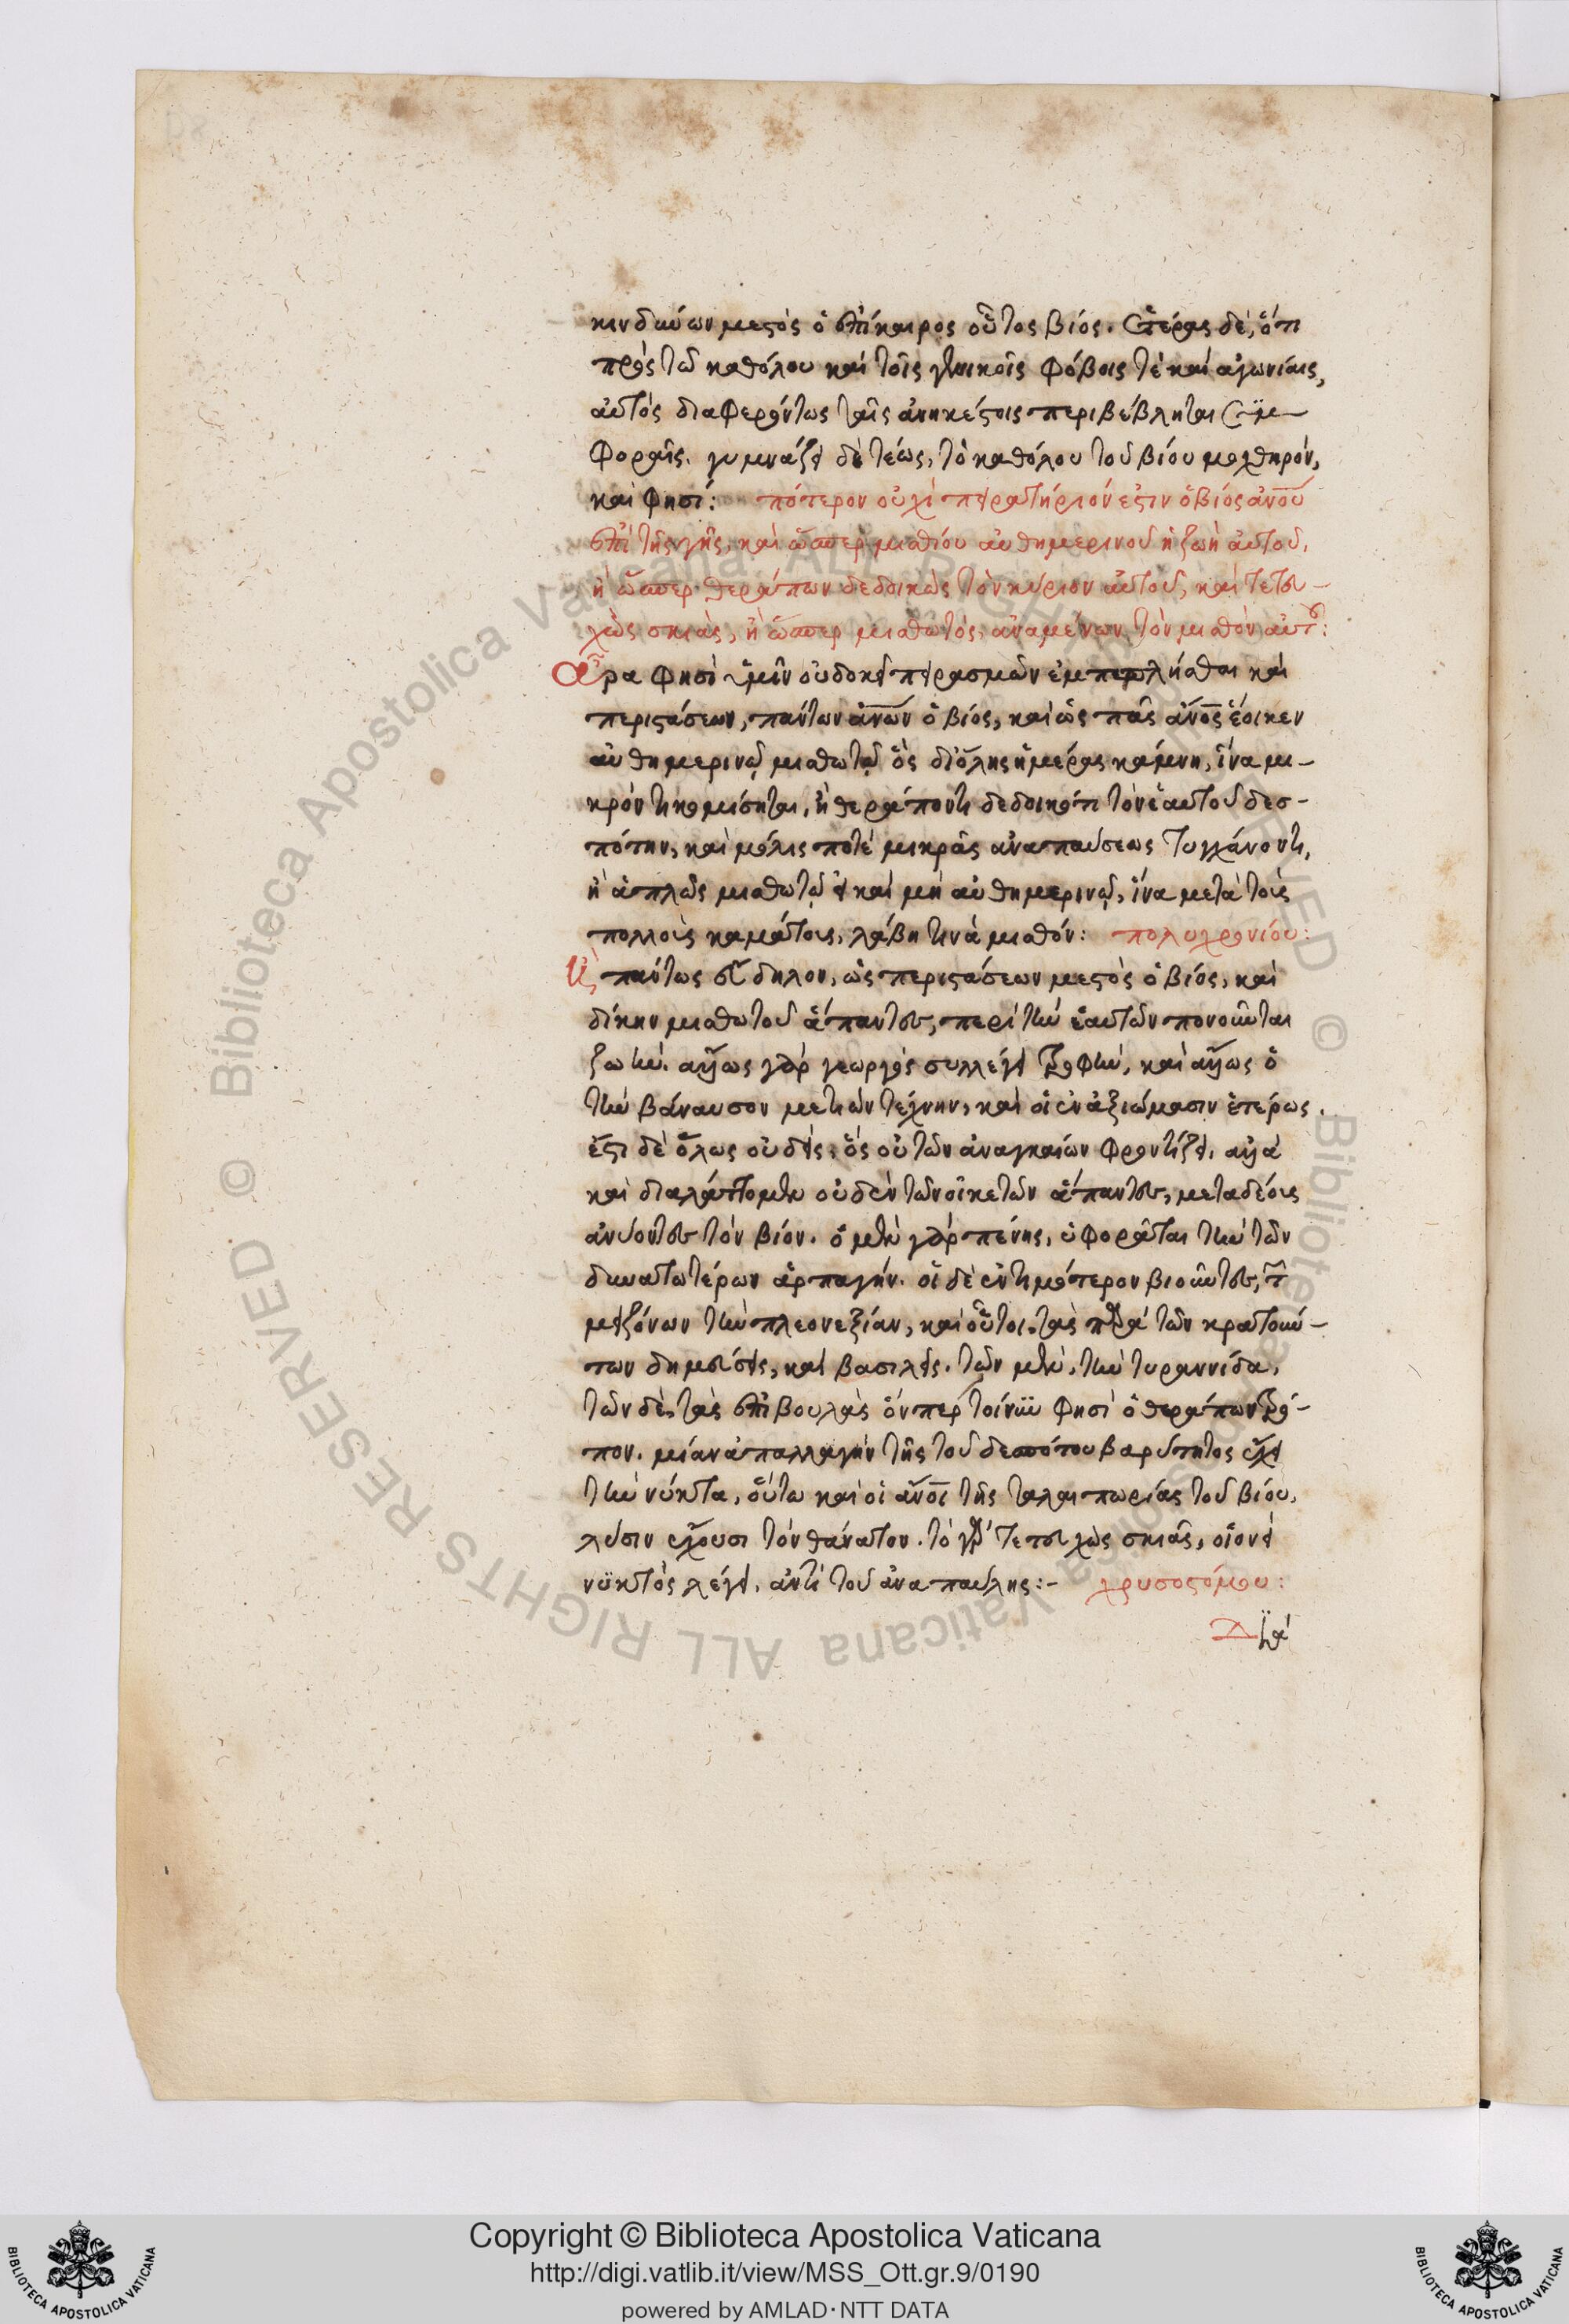 κινδύνων μεστὸς ὁ ἐπίκαιρος οὗτος βίος. ἑτέρας δὲ, ὅτι
πρὸς τῶ καθόλου καὶ τοῖς γενικοῖς φόβοις τὲ καὶ ἀγωνίαις,
αὐτὸς διαφερόντως ταῖς ἀνηκέστοις περιβέβληται συμ-
φοραῖς. γυμνάζει δὲ τέως, τὸ καθόλου τοῦ βίου μοχθηρόν,
καὶ φησί: πότερον οὐχὶ πειρατήριόν ἐστιν ὁ βίος ἀνου
ἐπὶ τῆς γῆς, καὶ ὥσπερ μισθίου αὐθημερινοῦ ἡ ζωὴ αὐτοῦ,
ἢ ὥσπερ θεράπων δεδοικὼς τὸν κύριον αὐτοῦ, καὶ τετευ-
χὼς σκιᾶς, ἢ ὥσπερ μισθωτὸς, ἀναμένων τὸν μισθὸν αὐτοῦ:
Ἆρα φησὶν ὑμῖν οὐ δοκεῖ πειρασμῶν ἐμπεπλῆσθαι καὶ
περιστάσεων, πάντων ἀνων ὁ βίος, καὶ ὡς πᾶς ἀνος ἔοικεν
αὐθημερινῷ μισθωτῷ ὃς δι' ὅλης ἡμέρας κάμνη, ἵνα μι-
κρόν τι κομίσηται, ἢ θεράποντι δεδοικότι τὸν ἑαυτοῦ δεσ-
πότην, καὶ μόλις ποτὲ μικρᾶς ἀναπαύσεως τυγχάνοντι,
ἢ ἁπλῶς μισθωτῷ εἰ καὶ μὴ αὐθημερινῷ, ἵνα μετὰ τοὺς
πολλοὺς καμάτους, λάβη τινὰ μισθόν: πολυχρονίου:
Κ παντως εὔδηλον, ὡς περιστάσεων μεστὸς ὁ βίος, καὶ
δίκην μισθωτοῦ ἅπαντες, περὶ τὴν ἑαυτῶν πονοῦνται
ζωήν. ἄλλως γὰρ γεωργὸς συλλέγει τροφὴν, καὶ ἄλλως ὁ
τὴν βάναυσον μετιὼν τέχνην, καὶ οἱ ἐν ἀξιώμασιν ἑτέρως.
ἔστι δὲ ὅλως οὐδεὶς, ὃς οὐ τῶν ἀναγκαίων φροντίζει. ἀλλὰ
καὶ διαλάττομεν οὐδὲν τῶν οἰκετῶν ἅπαντες, μετὰ δέους
ἀνύοντες τὸν βίον. ὁ μὲν γὰρ πένης, ὑφορᾶται τὴν τῶν
δυνατωτέρων ἁρπαγήν. οἱ δὲ ἐντιμότερον βιοῦντες, τ
μειζόνων τὴν πλεονεξίαν, καὶ οὗτοι, τὰς παρὰ τῶν κρατούν-
των δημεύσεις, καὶ βασιλεῖς. τῶν μὲν, τὴν τυραννίδα,
τῶν δὲ, τὰς ἐπιβουλὰς ὅνπερ τοίνυν φησὶ ὁ θεράπων τρό-
πον. μίαν ἀπαλλαγὴν τῆς τοῦ δεσπότου βαρύτητος ἔχει
τὴν νύκτα, οὕτω καὶ οἱ ἀνοι τῆς ταλαιπωρίας τοῦ βίου,
λύσιν ἔχουσι τὸν θάνατον. τὸ γὰρ τετευχὼς σκιᾶς, οἱονεὶ
νυκτὸς λέγει, ἀντὶ τοῦ ἀναπαύλης:- χρυσοστόμου:
Copyright © Biblioteca Apostolica Vaticana
http://digi.vatlib.it/view/MSS_Ott.gr.9/0190
powered by AMLAD·NTT DATA